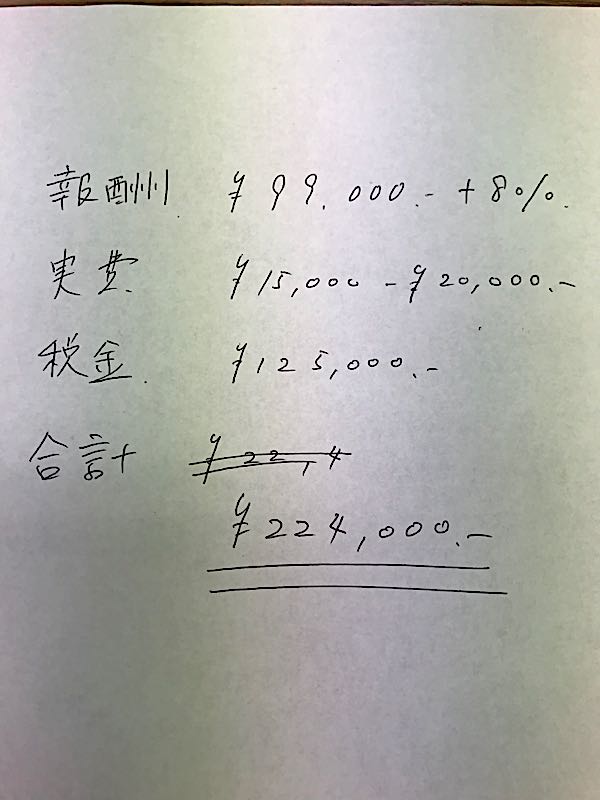 報酬 ¥99,000.- + 8%.
実費 ¥15,000 - ¥20,000.-
税金. ¥125,000.-
合計 ¥22,4
¥224,000.-